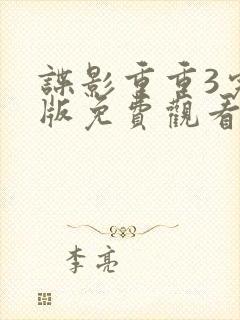 諜影重重3完
版免費觀看
李亮